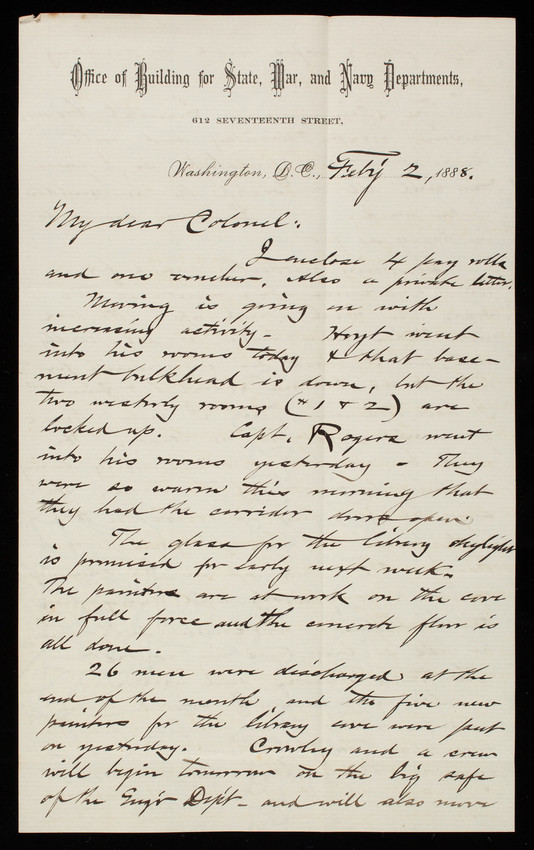 Office of Building for State, War, and Navy Departments,
612 SEVENTEENTH STREET.
Washington, D.C., Feb'y 2, 1888.
My dear Colonel:
I enclose 4 pay rolls
and one voucher. Also a private letter.
Moving is going on with
increasing activity - Hoyt went
into his rooms today & that base-
ment bulkhead is down, but the
two westerly rooms (#1 & 2) are
locked up. Capt. Rogers went
into his rooms yesterday - They
were so warm this morning that
they had the corridor doors open.
The glass for the library skylight
is promised for early next week.
The painters are at work on the cove
in full force and the concrete floor is
all done.
26 men were discharged at the
end of the month and the five new
painters for the library cove were put
on yesterday. Crowley and a crew
will begin tomorrow on the big safe
of the Eng'r Dep't - and will also move